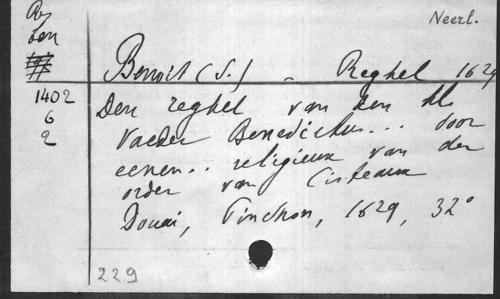 Neerl.
Ben
Benoit (S.) - Reghel 1629
1402
6
2
Den reghel van den hl.
Vader Benedictus... door
eenen.. religieux van der
order van Cisteaux
Douai, Pinchon, 1629, 32°
229